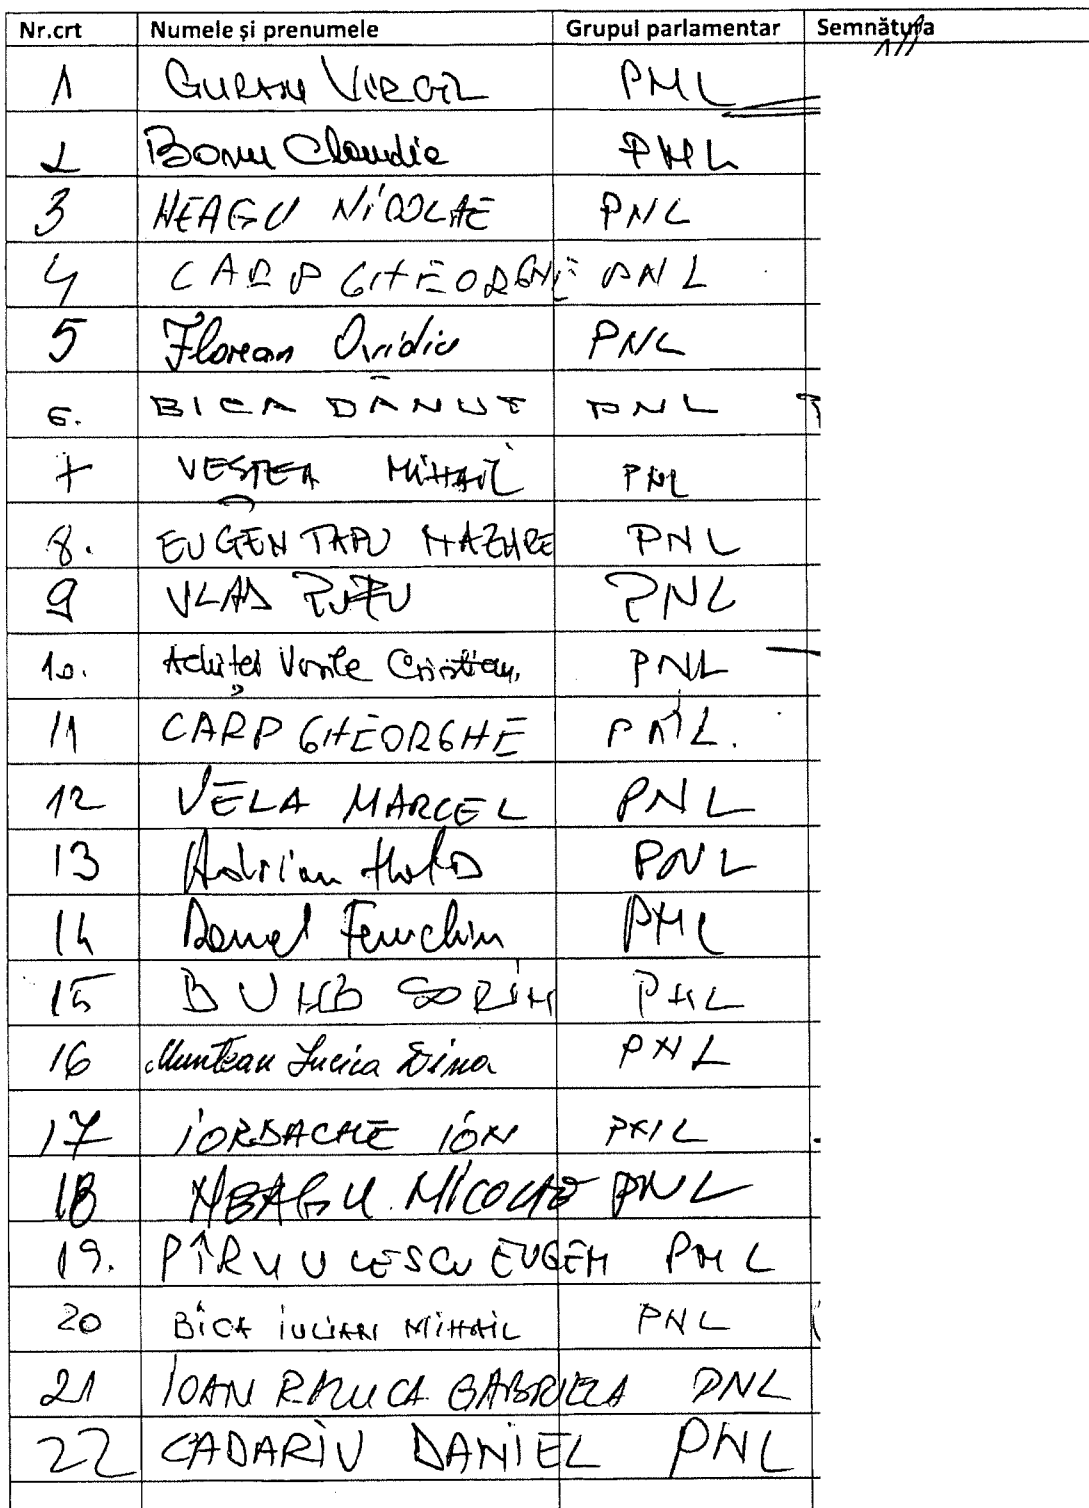 Nr.crt Numele și prenumele Grupul parlamentar Semnătura
1 GURAN VIRGIL PNL
2 Bonu Claudia PNL
3 NEAGU NICOLAE PNL
4 CARP GHEORGHE PNL
5 Florean Ovidiu PNL
6. BICA DĂNUȚ PNL
7 VEȘTEA MIHAIL PNL
8. EUGEN TAPU NAZARE PNL
9 VLAD PUFU PNL
10. Achiței Vasile Cristian, PNL
11 CARP GHEORGHE PNL.
12 VELA MARCEL PNL
13 Adrian PNL
14 Daniel Fenechiu PNL
15 BUMB SORIN PNL
16 Muntean Lucica Dina PNL
17 IORDACHE ION PNL
18 NEAGU NICOLAE PNL
19. PÎRVULESCU EUGEN PNL
20 BICA IULIAN MIHAIL PNL
21 IOAN RALUCA GABRIELA PNL
22 CADARIU DANIEL PNL